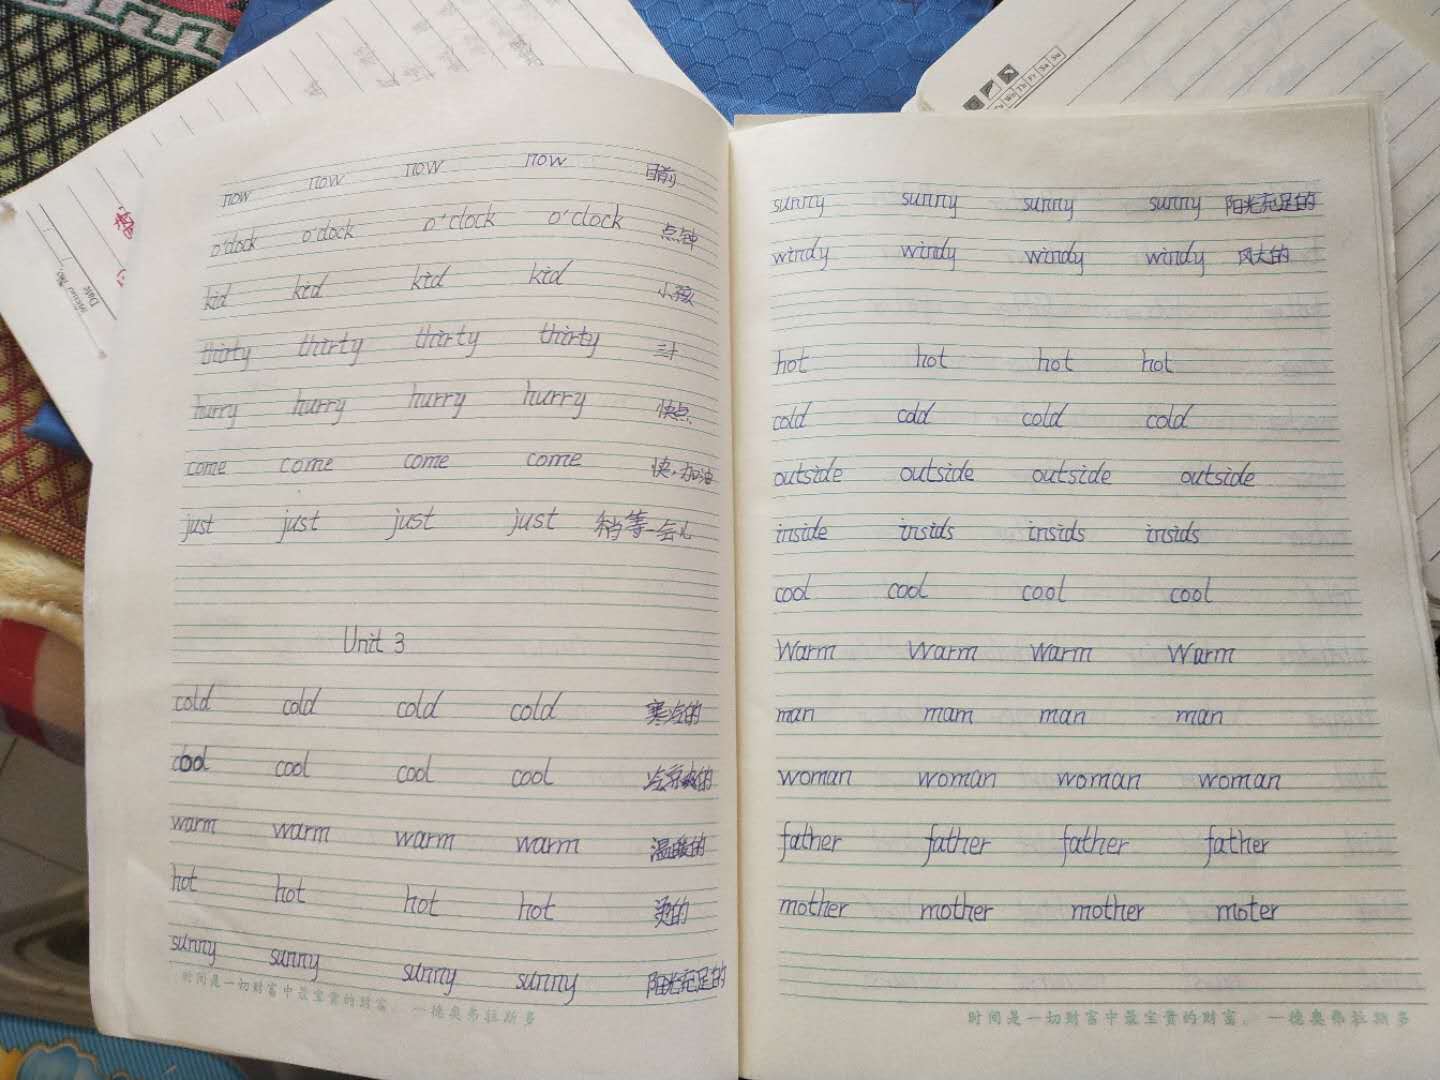 now now now now 目前
o'clock o'clock o'clock o'clock 点钟
kid kid kid kid 小孩
thirty thirty thirty thirty 三十
hurry hurry hurry hurry 快点
come come come come 快,加油
just just just just 稍等一会儿
Unit 3
cold cold cold cold 寒冷的
cool cool cool cool 凉爽的
warm warm warm warm 温暖的
hot hot hot hot 烫的
sunny sunny sunny sunny 阳光充足的
时间是一切财富中最宝贵的财富。 —德奥弗拉斯多
sunny sunny sunny sunny 阳光充足的
windy windy windy windy 风大的
hot hot hot hot
cold cold cold cold
outside outside outside outside
inside insids insids insids
cool cool cool cool
Warm Warm Warm Warm
man mam man man
woman woman woman woman
father father father father
mother mother mother moter
时间是一切财富中最宝贵的财富。 —德奥弗拉斯多
Date
Th Fr Sa Su